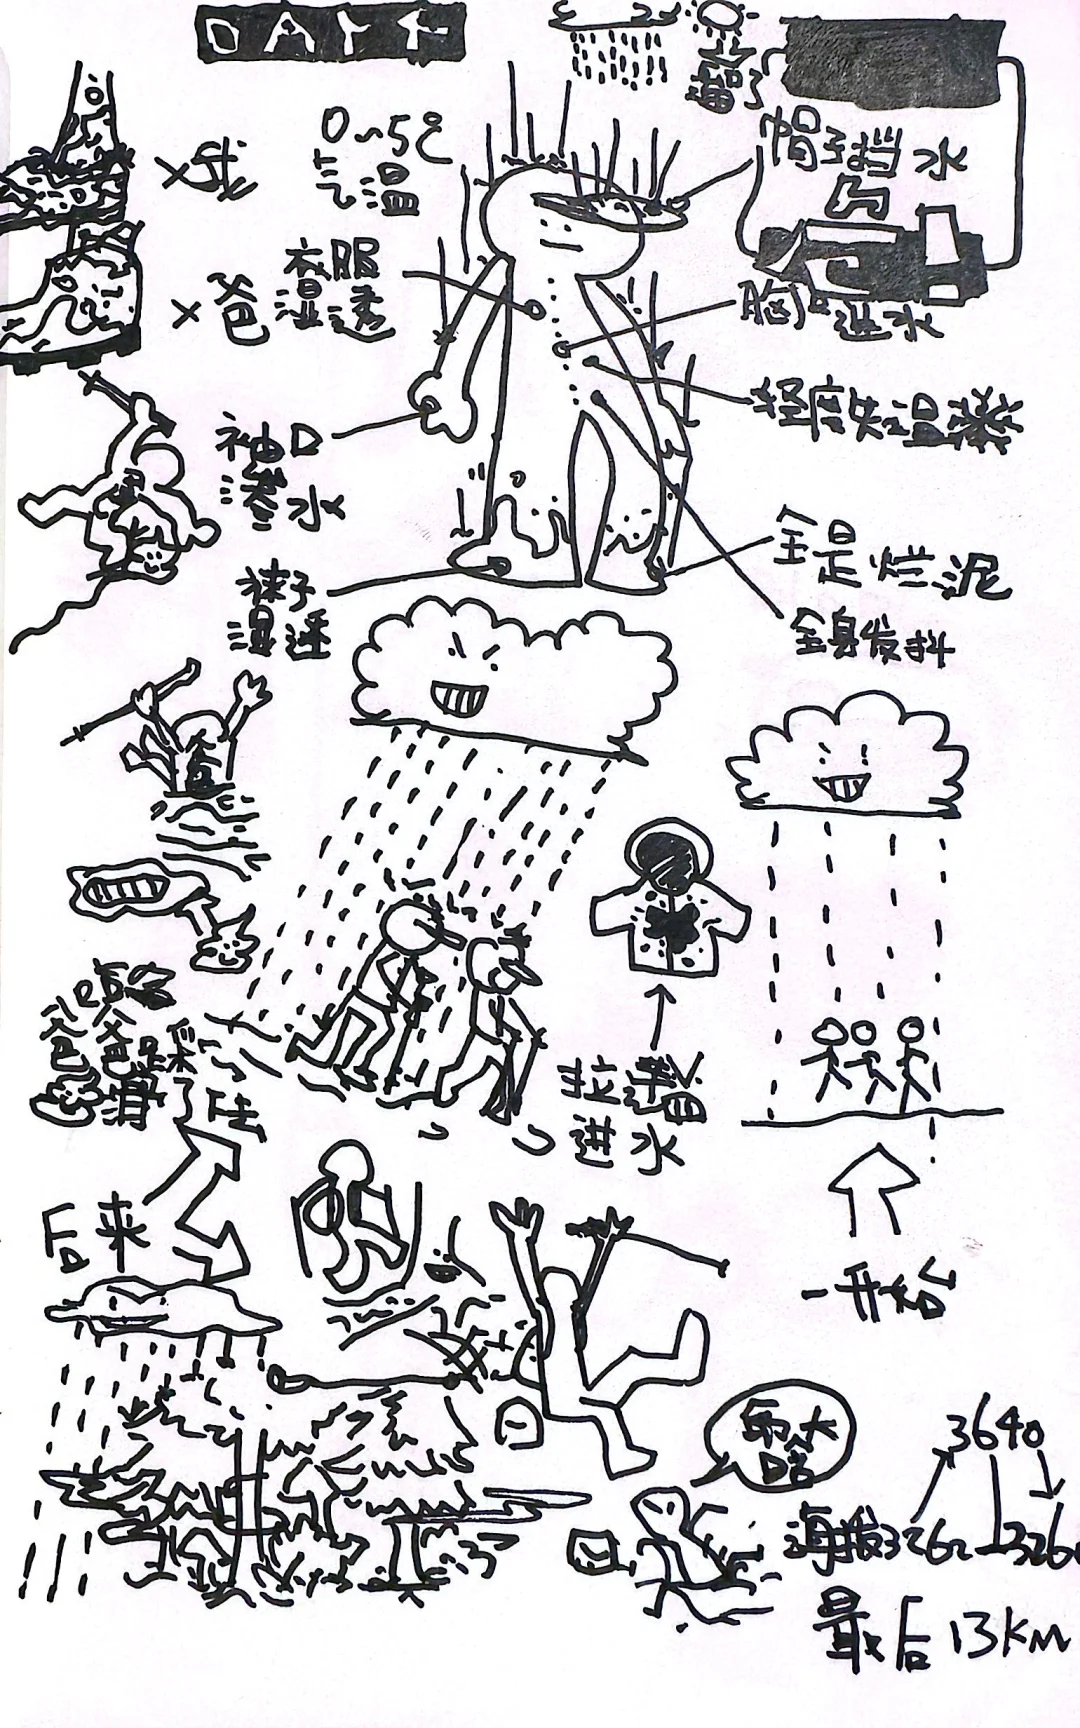 DAY4
漏了
0~5℃
气温
帽子挡水
×我
衣服
湿透
×爸
胸口进水
轻度失温
袖口
渗水
全是烂泥
袜子
湿透
全身发抖
爸
拉链
进水
爸爸
滑了
后来
一开始
雨大
3640
海拔3260
326
最后13KM